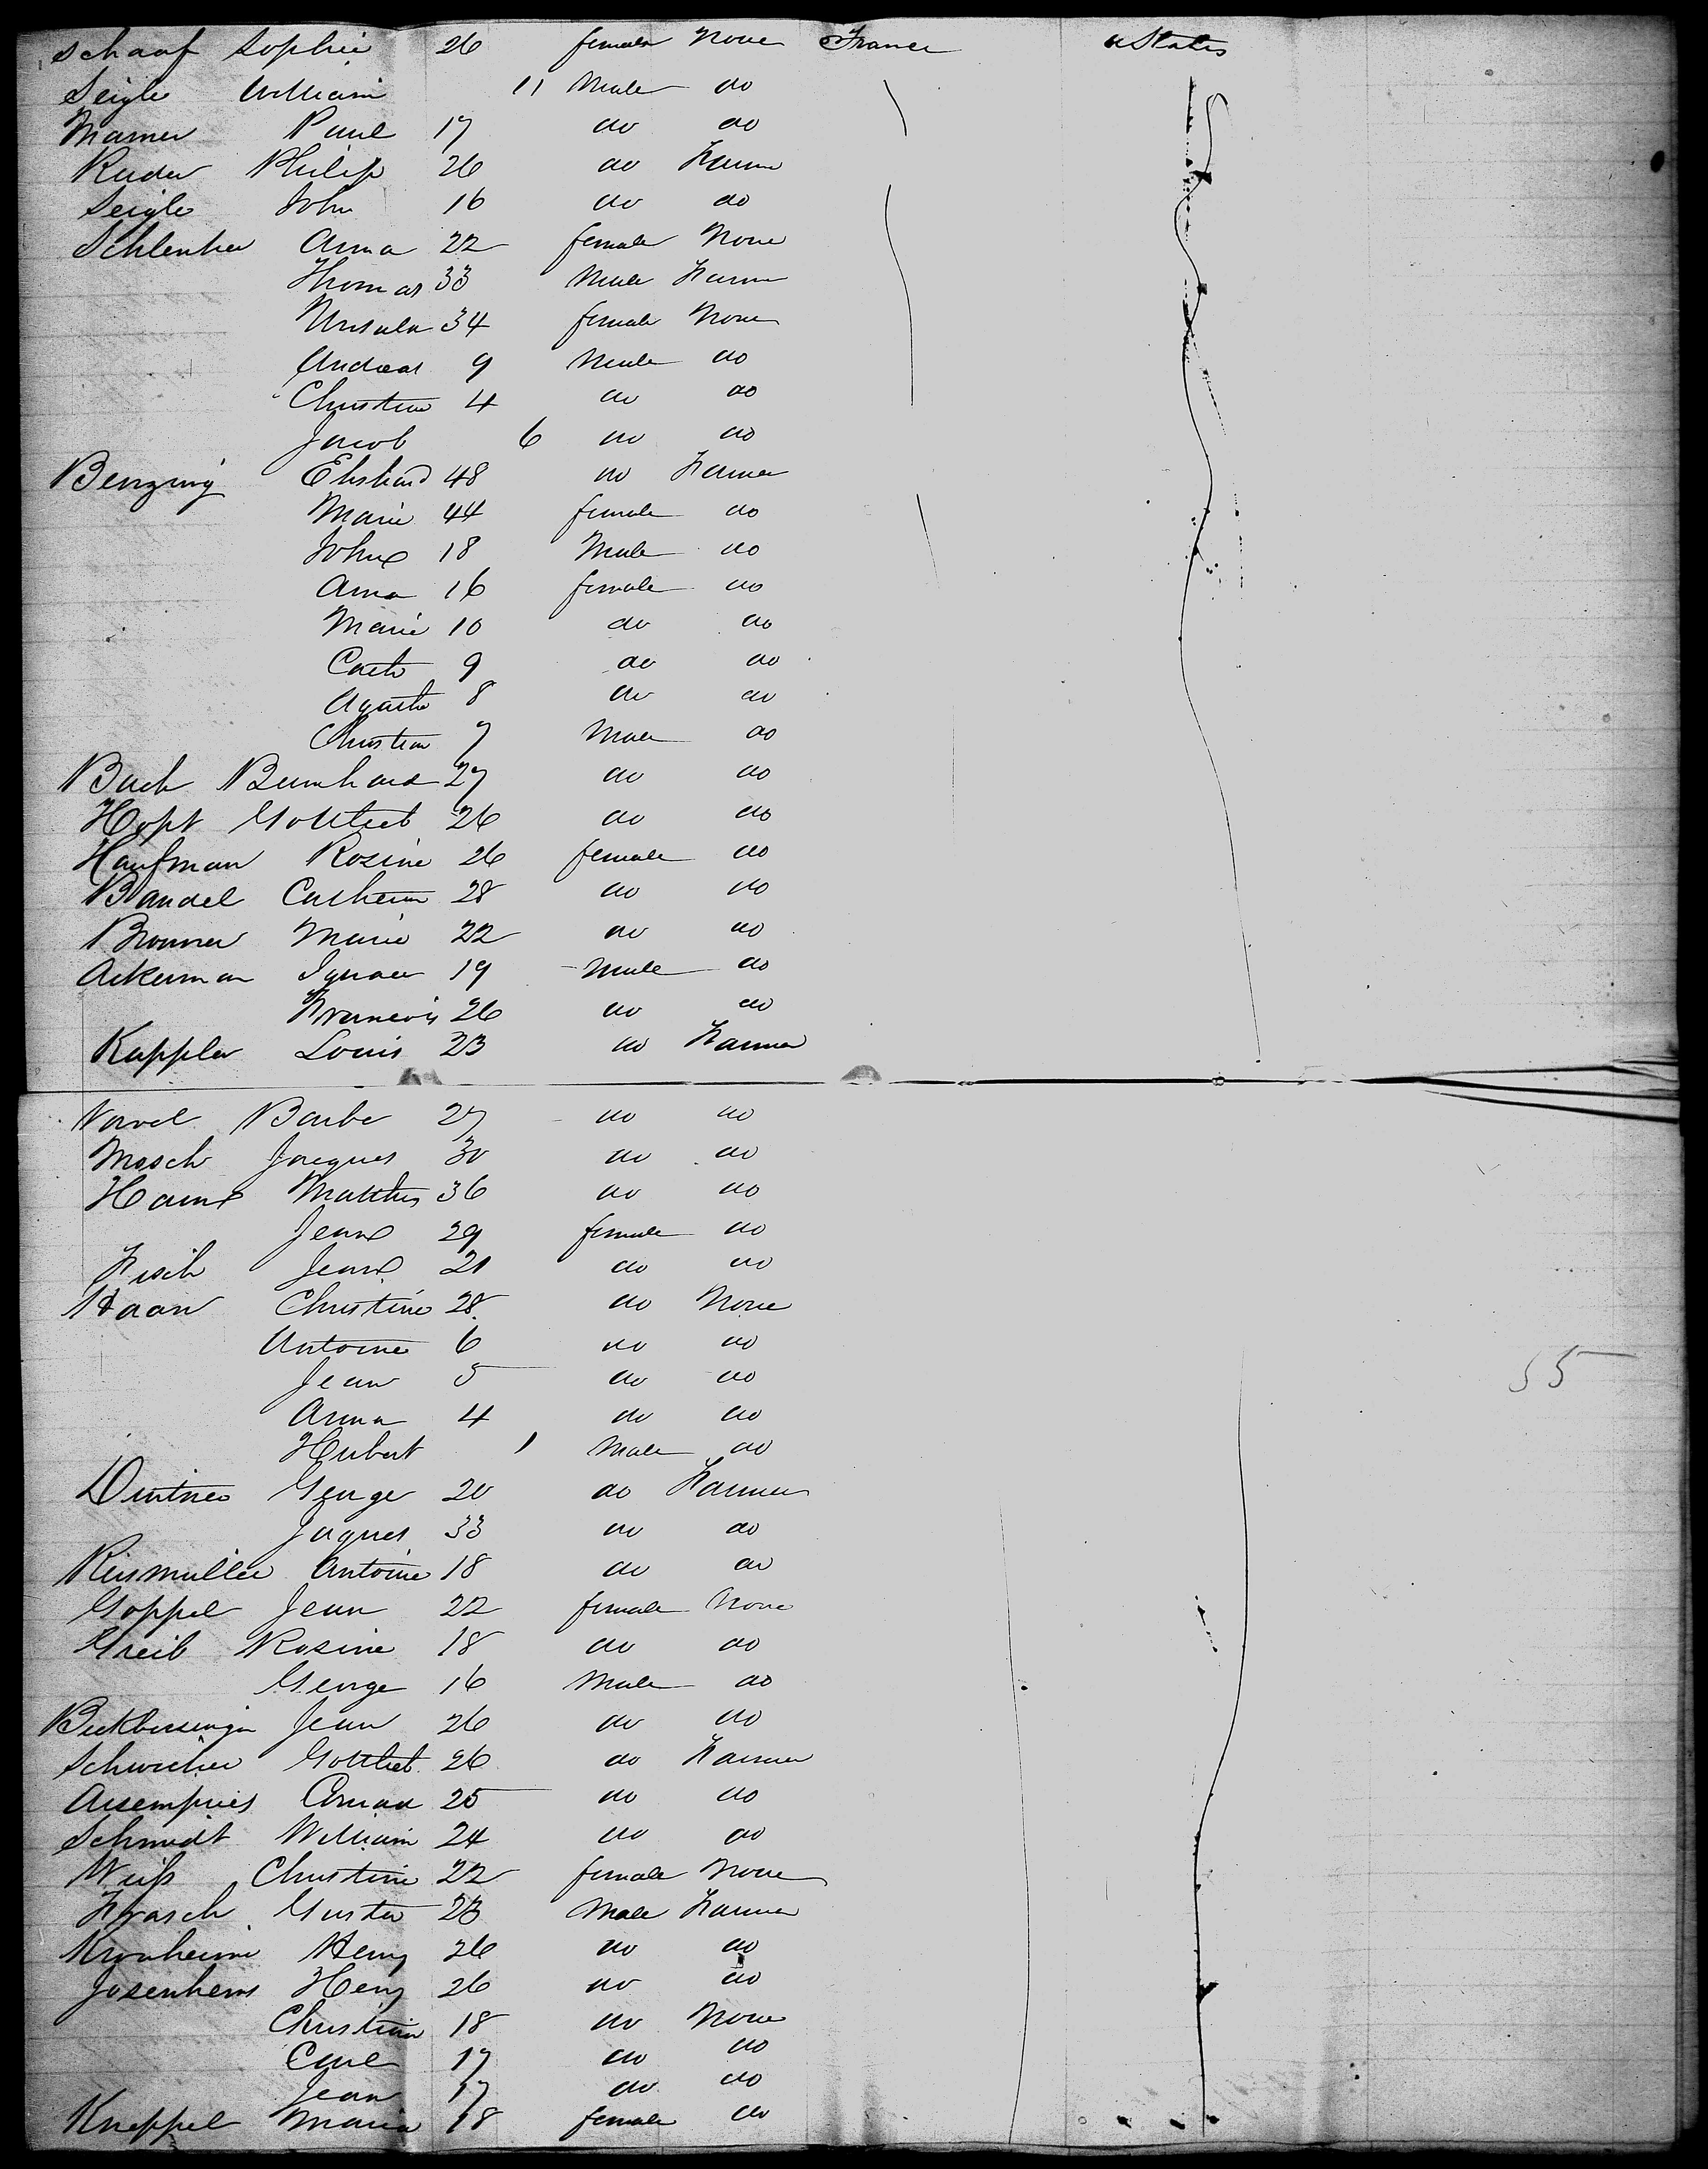 Schaaf Sophie 26 female None France U States
Seigle William 11 Male do
Mamer Paul 17 do do
Ruder Philip 26 do Farmer
Seigle John 16 do do
Schlenker Anna 22 female None
Thomas 33 Male Farmer
Ursula 34 female None
Andreas 9 Male do
Christian 4 do do
Jacob 6 do do
Benzing 48 do Farmer
Marie 44 female do
John 18 Male do
Anna 16 female do
Marie 10 do do
9 do do
Agatha 8 do do
Christian 7 Male do
Buch Bernhard 27 do do
Hopt Gottlieb 26 do do
Haufman Rosine 26 female do
Bandel 28 do do
Bronner Marie 22 do do
Ackerman Ignace 19 Male do
Francois 26 do do
Kappler Louis 23 do Farmer
Barbe 27 do do
Mosch Jacques 30 do do
Hame Matthis 36 do do
Jean 29 female do
Fisch Jean 21 do do
Haan Christine 28 do None
Antoine 6 do do
Jean 5 do do
Anna 4 do do
Hubert 1 Male do
George 20 do Farmer
Jaques 33 do do
Reismuller Antoine 18 do do
Goppel Jean 22 female None
Greib Rosine 18 do do
George 16 Male do
Jean 26 do do
Gottlieb 26 do Farmer
25 do do
Schmidt William 24 do do
Weiss Christine 22 female None
Frasch Gustav 23 Male Farmer
Kronheim Henry 26 do do
Josenhans Henry 26 do do
Christian 18 do None
Carl 17 do do
Jean 17 do do
Kneppel Maria 18 female do
55